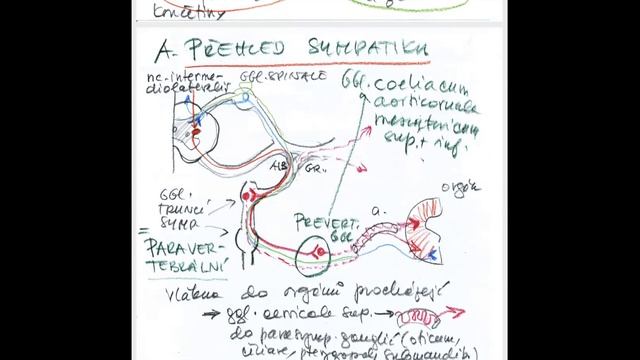 končetiny
A. PŘEHLED SYMPATIKU
nc. interme-
diolateralis
GGL. SPINALE
GGL. coeliacum
aorticorenale
mesentericum
sup. + inf.
ALB.
GR.
orgán
GGL.
TRUNCI
SYMP.
= PARAVER-
TEBRÁLNÍ
PREVERT.
GGL
a.
Vlákna do orgánů procházejí
→ ggl. cervicale sup. →
do parasymp. ganglií (oticum,
ciliare, pterygopal., submandib.)